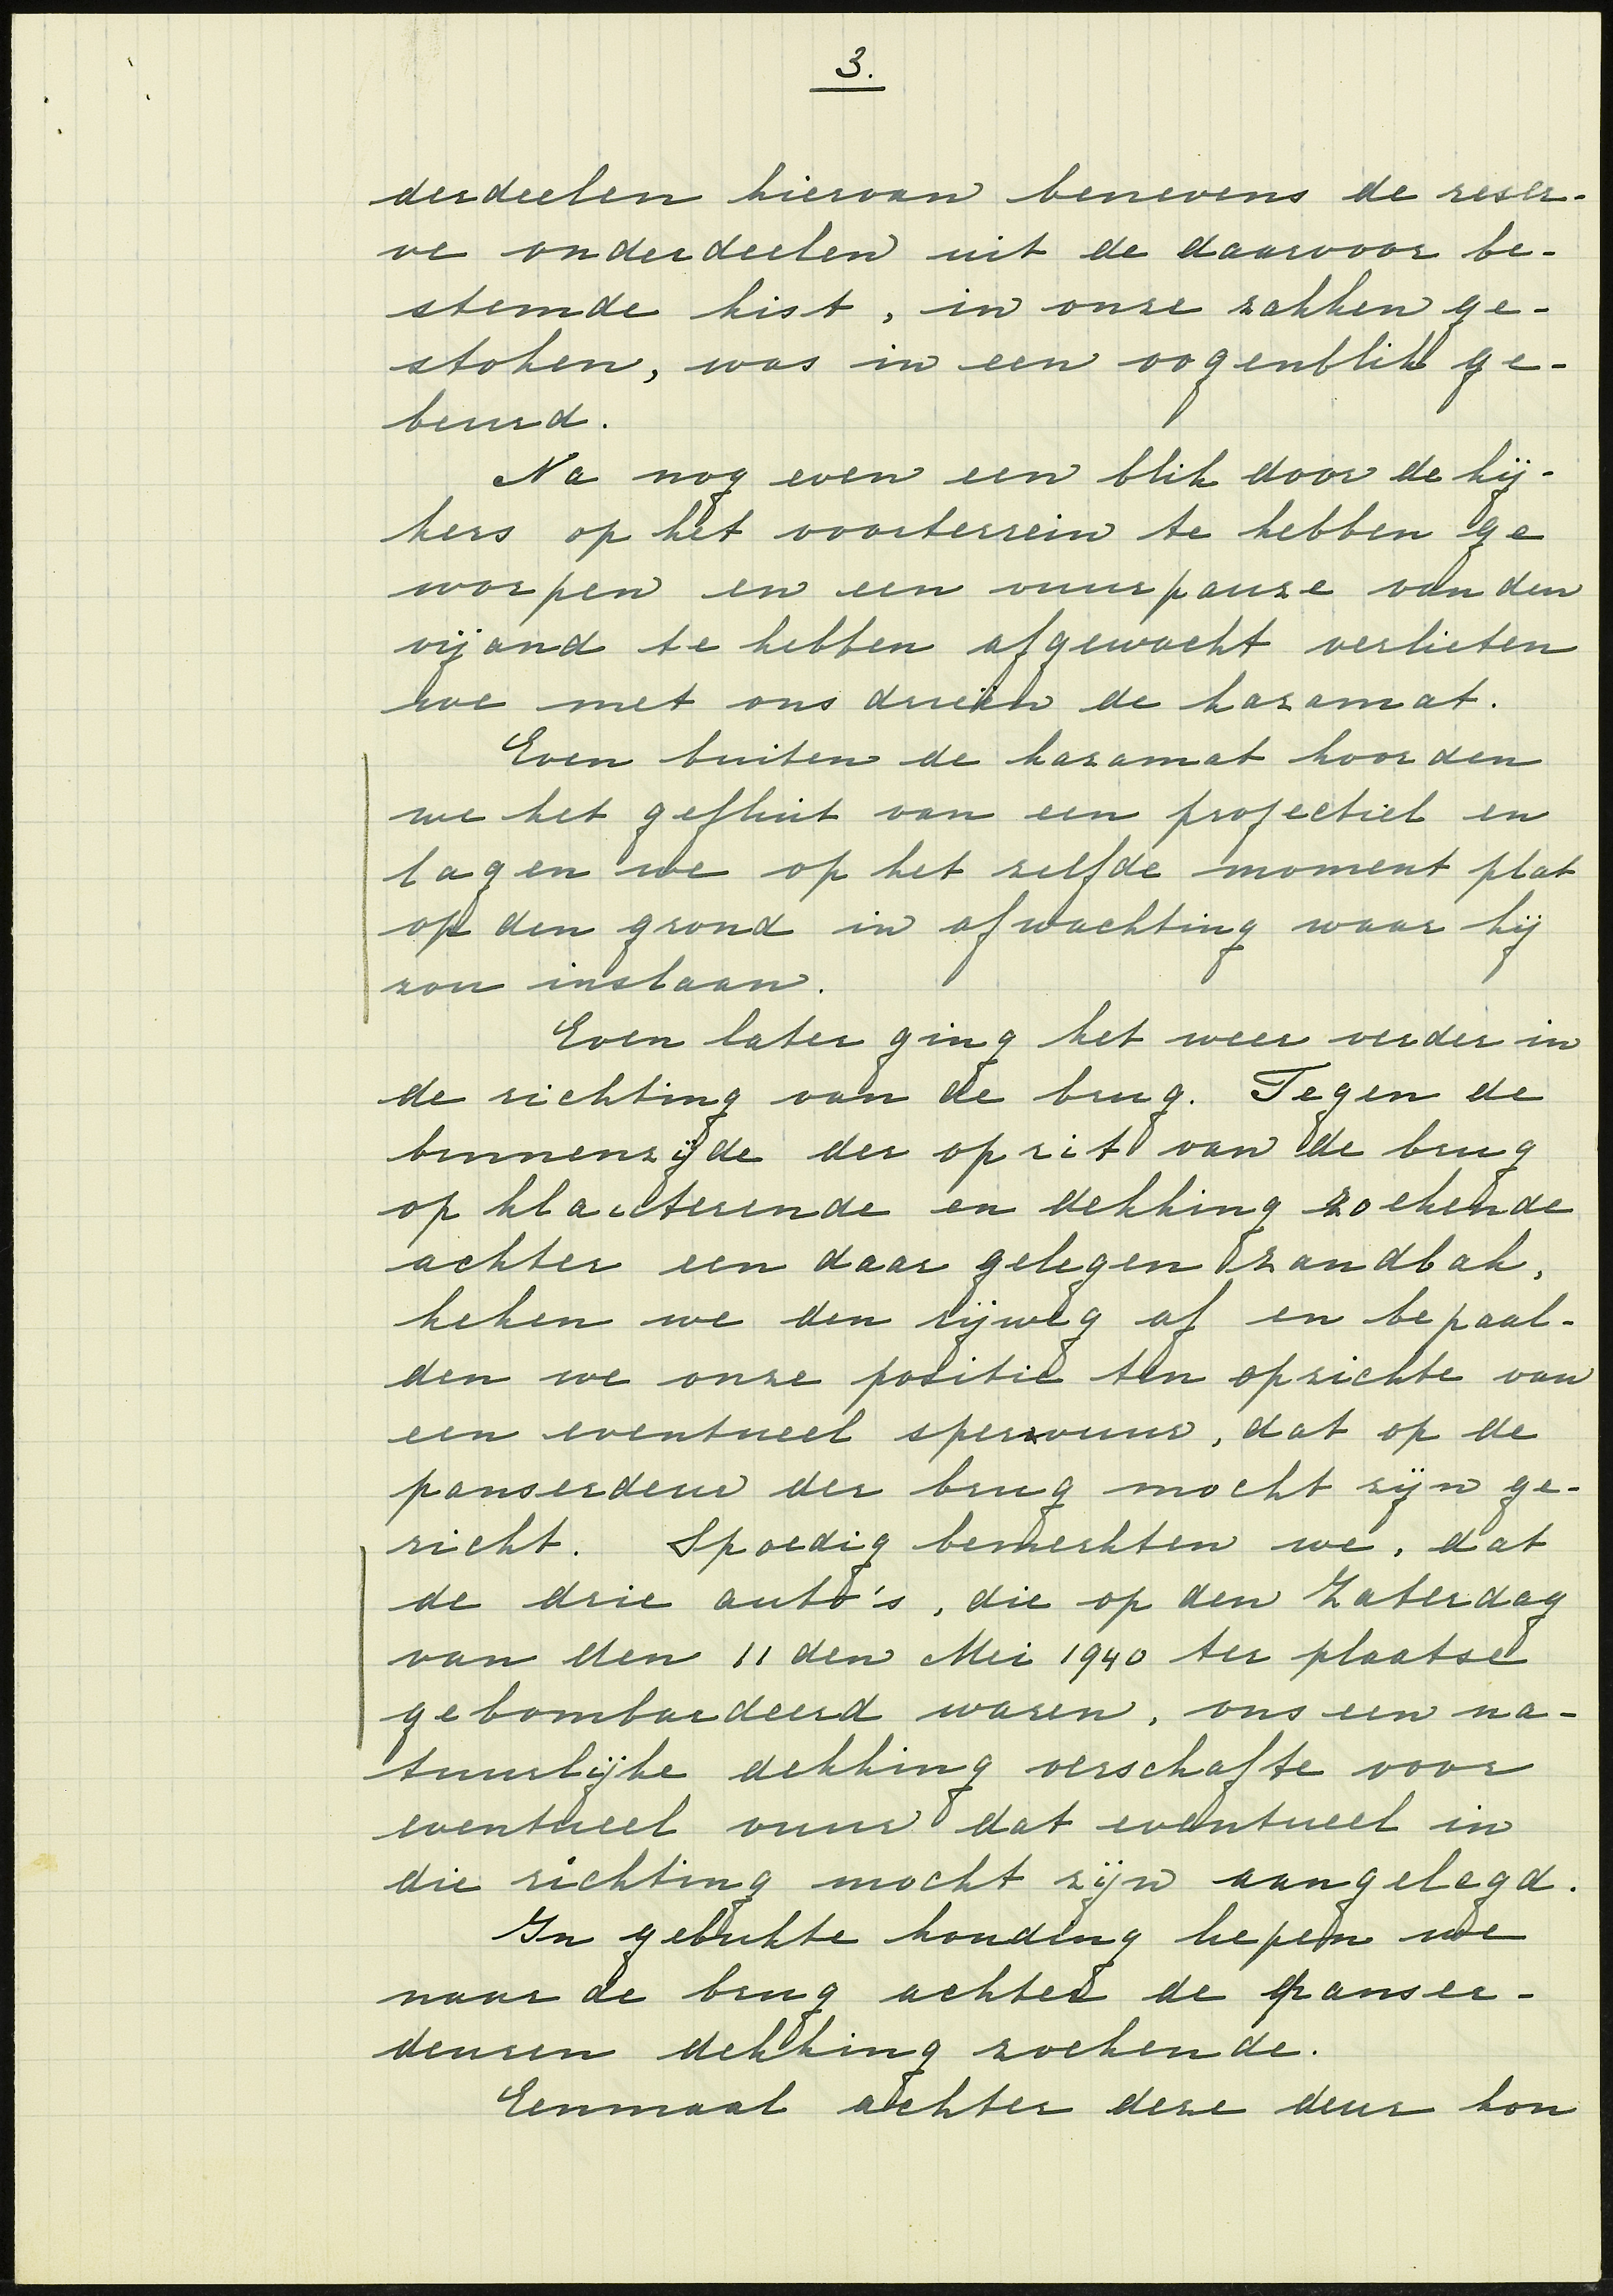 3.
derdeelen hiervan benevens de reser-
ve onderdeelen uit de daarvoor be-
stemde kist, in onze zakken ge-
stoken, was in een oogenblik ge-
beurd.
Na nog even een blik door de kij-
kers op het voorterrein te hebben ge
worpen en een vuurpauze van den
vijand te hebben afgewacht verlieten
we met ons drieën de kazamat.
Even buiten de kazamat hoorden
we het gefluit van een projectiel en
lagen we op het zelfde moment plat
op den grond in afwachting waar hij
zou inslaan.
Even later ging het weer verder in
de richting van de brug. Tegen de
binnenzijde der oprit van de brug
op klauterende en dekking zoekende
achter een daar gelegen zandbak,
keken we den rijweg af en bepaal-
den we onze positie ten opzichte van
een eventueel spervuur, dat op de
panserdeur der brug mocht zijn ge-
richt. Spoedig bemerkten we, dat
de drie auto's, die op den Zaterdag
van den 11 den Mei 1940 ter plaatse
gebombardeerd waren, ons een na-
tuurlijke dekking verschafte voor
eventueel vuur dat eventueel in
die richting mocht zijn aangelegd.
In gebukte houding liepen we
naar de brug achter de panser-
deuren dekking zoekende.
Eenmaal achter deze deur kon